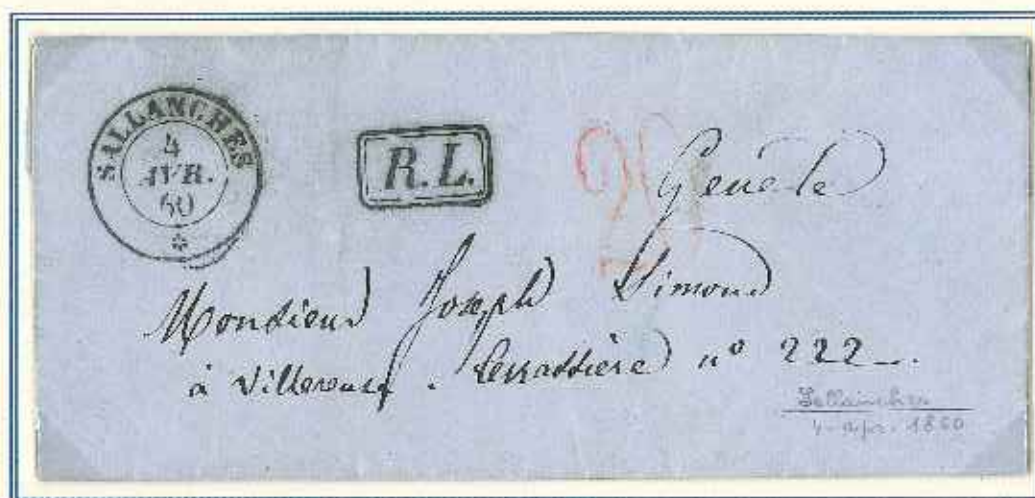 SALLANCHES
4
AVR.
60
R.L.
20
Genève
Monsieur Joseph Simond
à Villereuse. Terrassière n° 222
Sallanches
4. Apr. 1860